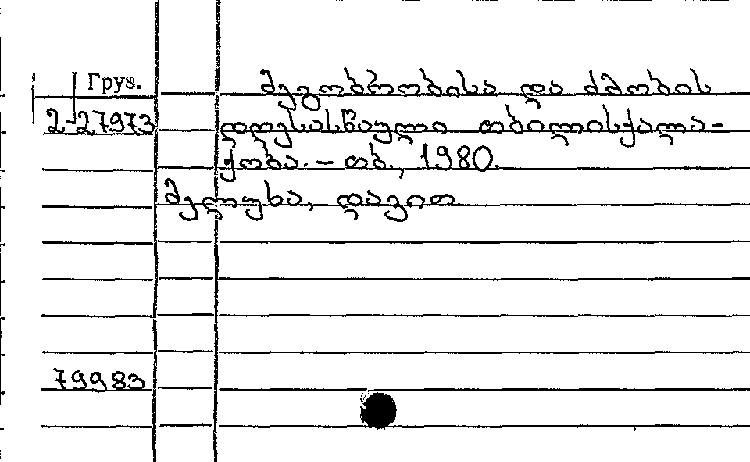 Груз.
მეგობრობისა და ძმობის
2-27973
დღესასწაული თბილისქალა-
ქობა. – თბ., 1980.
მელუხა, დავით
79983